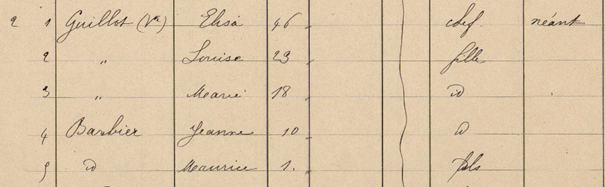 2 1 Guillot (Ve) Elisa 46 chef néant
2 " Louise 23 fille
3 " Marie 18 id
4 Barbier Jeanne 10 id
5 id Maurice 1. fils